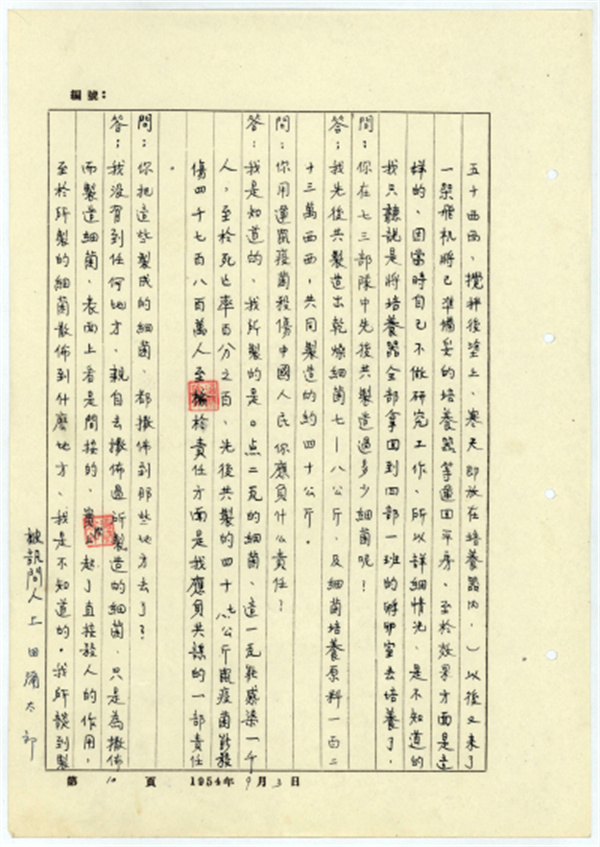 編號：
五十西西，攪拌後塗上，寒天即放在培養器內，）以後又来了
一架飛机將已準備妥的培養器等運回平房，至於效果方面是這
樣的，因當時自己不做研究工作，所以詳細情况，是不知道的
我只聽說是將培養器全部拿回到四部一班的孵卵室去培養了，
問：你在七三部隊中先後共製造過多少細菌呢！
答：我先後共製造出乾燥細菌七—八公斤，及細菌培養原料一百二
十三萬西西，共同製造的約四十公斤。
問：你用這鼠疫菌殺傷中國人民你應負什么責任！
答：我是知道的，我所製的是。点二瓦的細菌，這一瓦能感染一千
人，至於死亡率百分之百，先後共製的四十七八公斤鼠疫菌能殺
傷四千七百八百萬人至於責任方面是我應負共謀的一部責任
。
問：你把這些製成的細菌，都撒佈到那些地方去了？
答：我没有到任何地方，親自去撒佈過所製造的細菌，只是為撒佈
而製造細菌，表面上看是間接的，起了直接殺人的作用，
至於所製的細菌散佈到什麽地方，我是不知道的。我所談到製
被訊問人上田彌太郎
第 10 頁 1954年 9月 3日